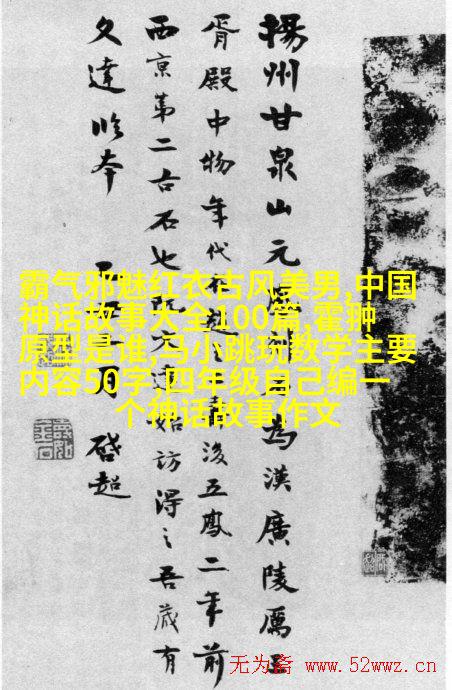 霸气邪魅红衣古风美男,中国
神话故事大全100篇,霍翀
原型是谁,马小跳玩数学主要
内容50字,四年级自己编一
个神话故事作文
揚州甘泉山元為漢廣陵厲王
胥殿中物年代不後五鳳二年前
西京第二古石也始訪得之吾藏有
文達臨本月啓超
无为斋 www.52wwz.cn